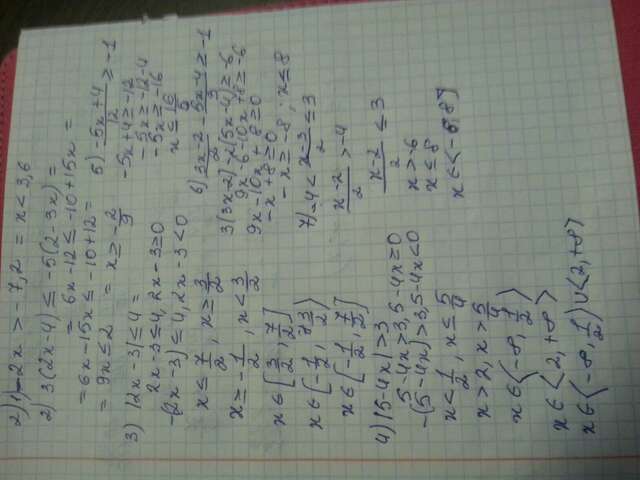 2) 1) -2x > -7,2 = x < 3,6
2) 3(2x-4) ≤ -5(2-3x) =
= 6x-12 ≤ -10+15x =
= 6x-15x ≤ -10+12 =
= 9x ≤ 2 = x ≥ -2/9
3) |2x-3| ≤ 4 =
2x-3 ≤ 4, 2x-3 ≥ 0
-(2x-3) ≤ 4, 2x-3 < 0
x ≤ 7/2, x ≥ 3/2
x ≥ -1/2, x < 3/2
x ∈ [3/2, 7/2]
x ∈ [-1/2, 3/2⟩
x ∈ [-1/2, 7/2]
4) |5-4x| > 3
5-4x > 3, 5-4x ≥ 0
-(5-4x) > 3, 5-4x < 0
x < 1/2, x ≤ 5/4
x > 2, x > 5/4
x ∈ ⟨-∞, 1/2⟩
x ∈ ⟨2, +∞⟩
x ∈ ⟨-∞, 1/2⟩ ∪ ⟨2, +∞⟩
5) (-5x+4)/12 ≥ -1
-5x+4 ≥ -12
-5x ≥ -12-4
-5x ≥ -16
x ≤ 16/5
6) (3x-2)/2 - (5x-4)/3 ≥ -1
3(3x-2) -2(5x-4) ≥ -6
9x-6-10x+8 ≥ -6
9x-10x+8 ≥ 0
-x+8 ≥ 0
-x ≥ -8; x ≤ 8
7) -4 < (x-2)/2 ≤ 3
(x-2)/2 > -4
(x-2)/2 ≤ 3
x > -6
x ≤ 8
x ∈ ⟨-6, 8]